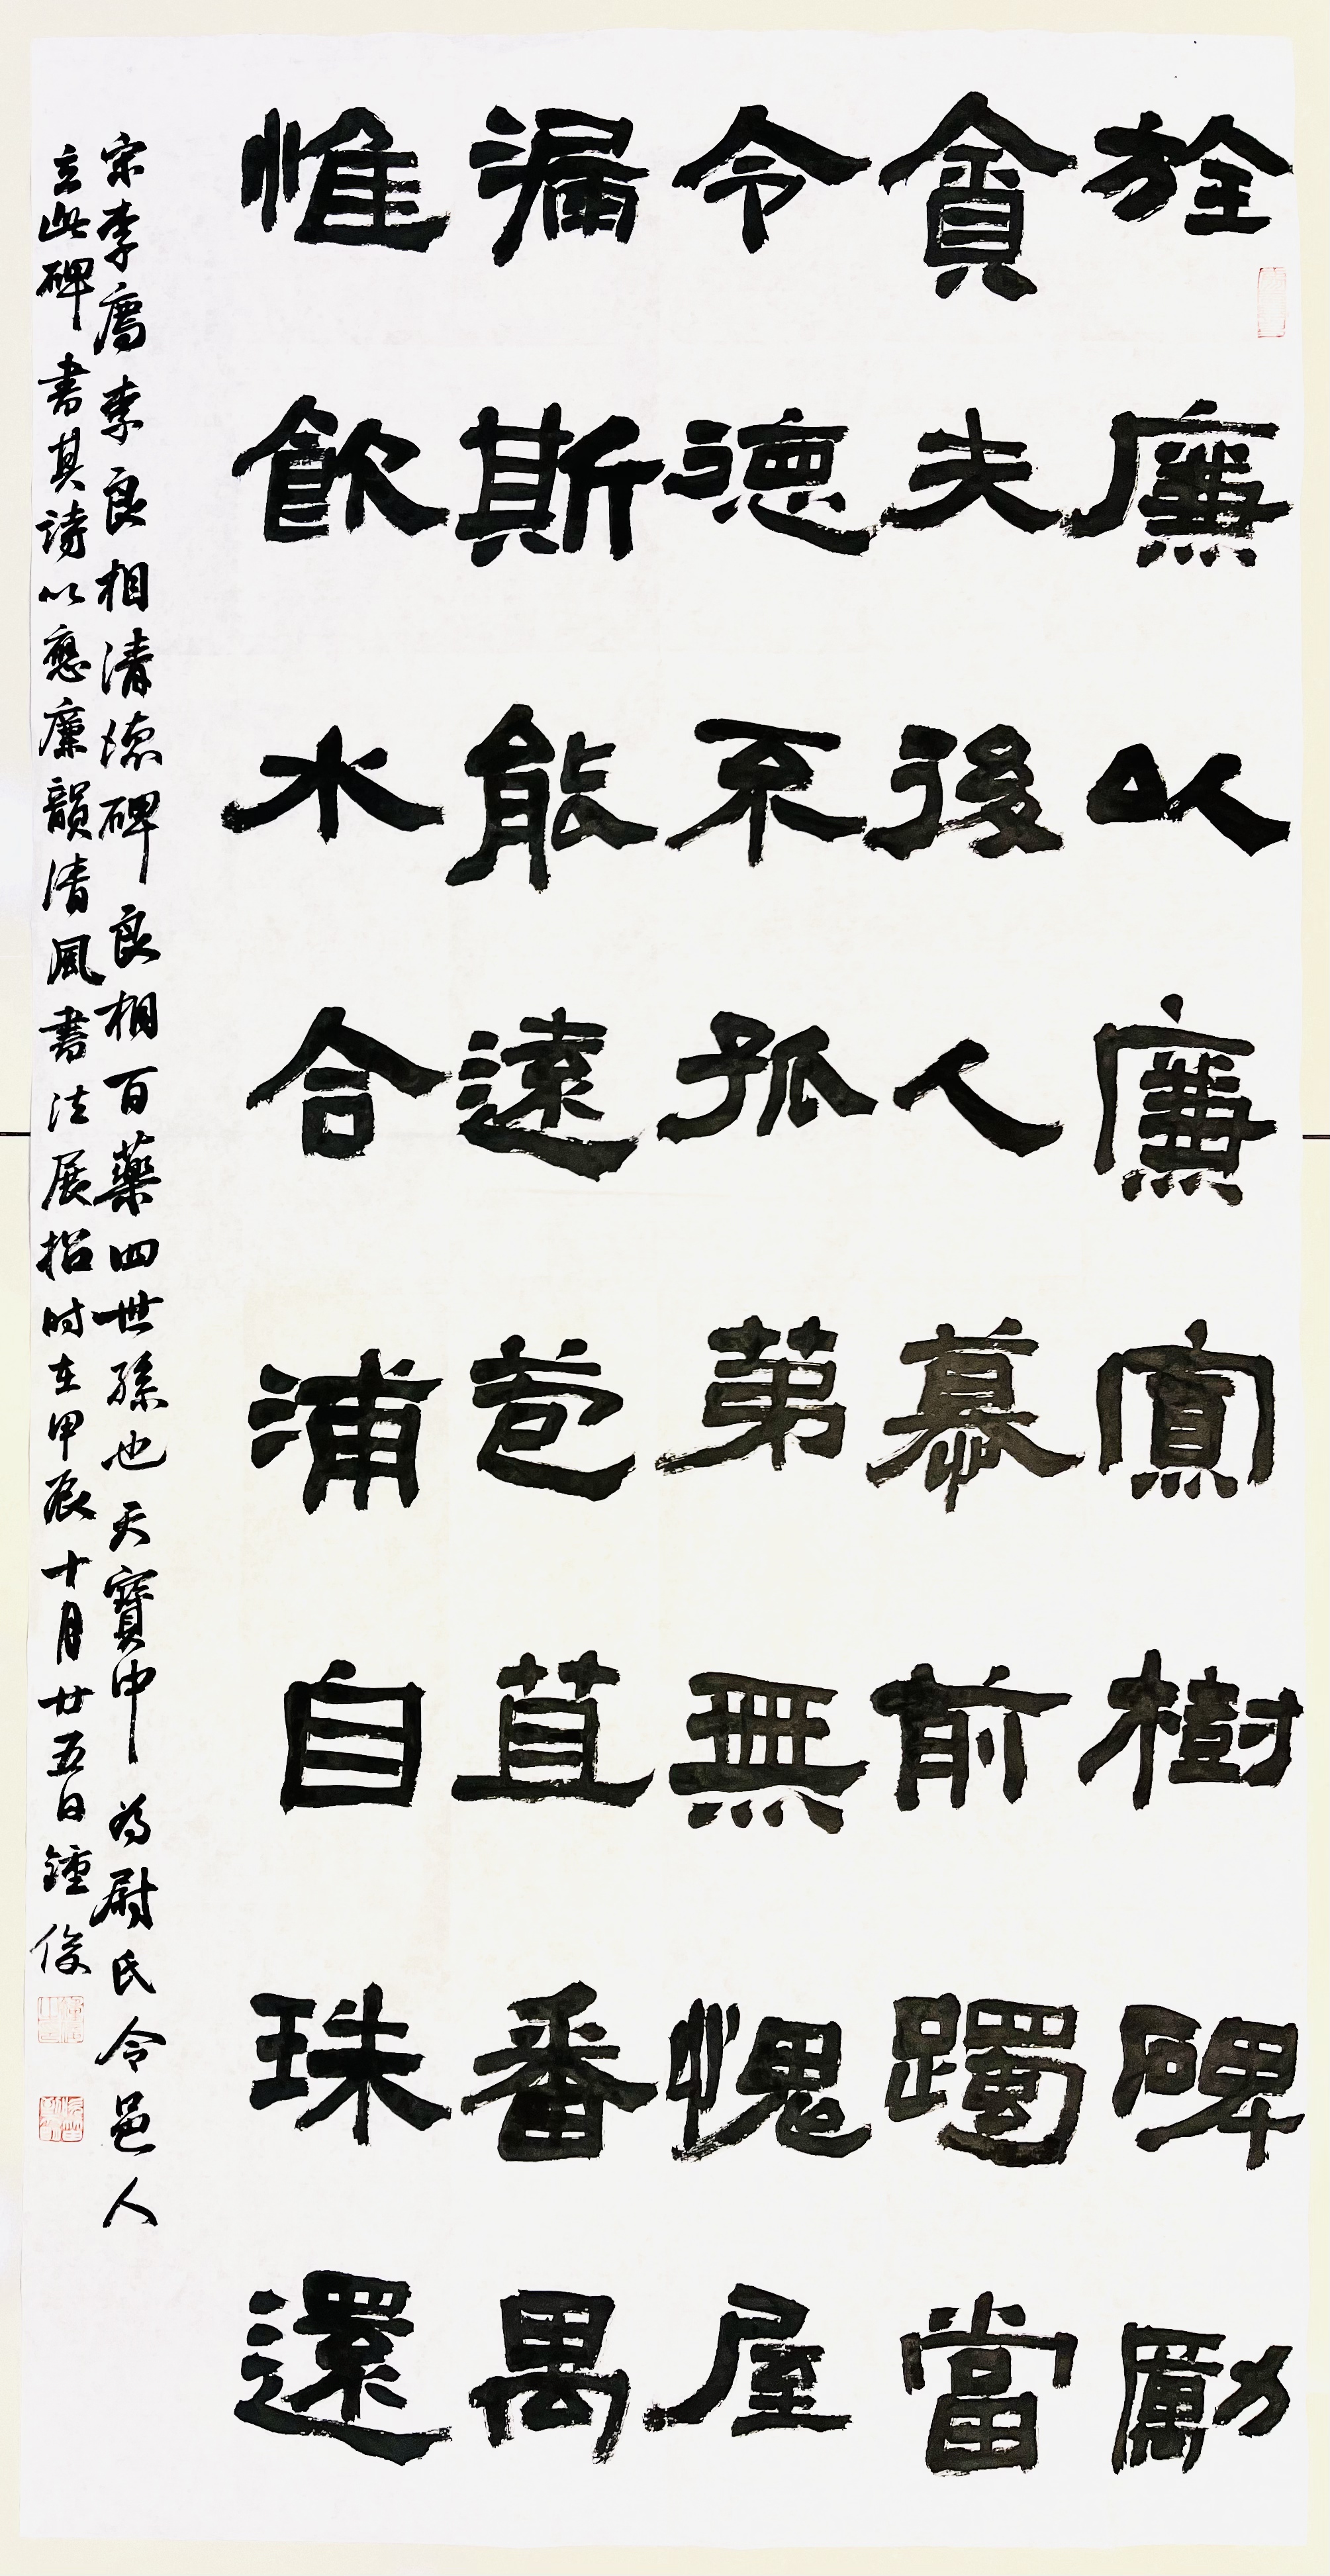 旌廉以廉寘樹碑勵
貪夫後人慕前躅當
令德不孤苐無愧屋
漏斯能遠苞苴番禺
惟飲水合浦自珠還
宋李廌李良相清德碑良相百藥四世孫也天寶中為尉氏令邑人
立此碑書其詩以應廉韻清風書法展招时在甲辰十月廿五日鍾俊